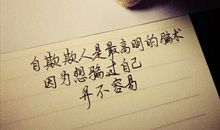 自欺欺人是最高明的骗术
因为想骗过自己
并不容易